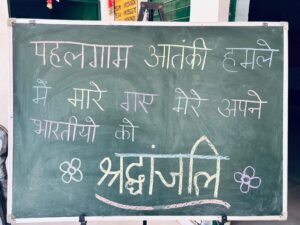 पहलगाम आतंकी हमले
में मारे गए मेरे अपने
भारतीयो को
श्रद्धांजलि